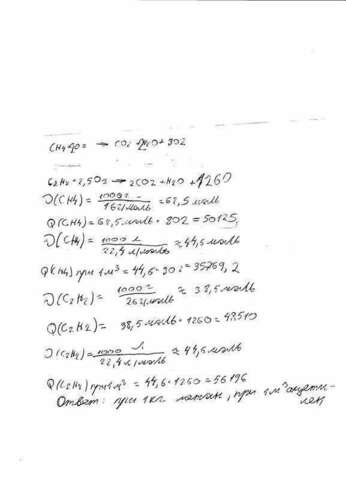 CH4+2O2 → CO2+2H2O+802
C2H2+2,5O2 → 2CO2+H2O+1260
ν(CH4)=1000г/16г/моль=62,5 моль
Q(CH4)=62,5 моль·802=50125
ν(CH4)=1000 л/22,4 л/моль≈44,6 моль
Q(CH4) при 1м³=44,6·802=35769,2
ν(C2H2)=1000г/26г/моль≈38,5 моль
Q(C2H2)=38,5 моль·1260=48510
ν(C2H2)=1000 л/22,4 л/моль≈44,6 моль
Q(C2H2) при 1 м³=44,6·1260=56196
Ответ: при 1 кг метан, при 1 м³ ацети-
лен